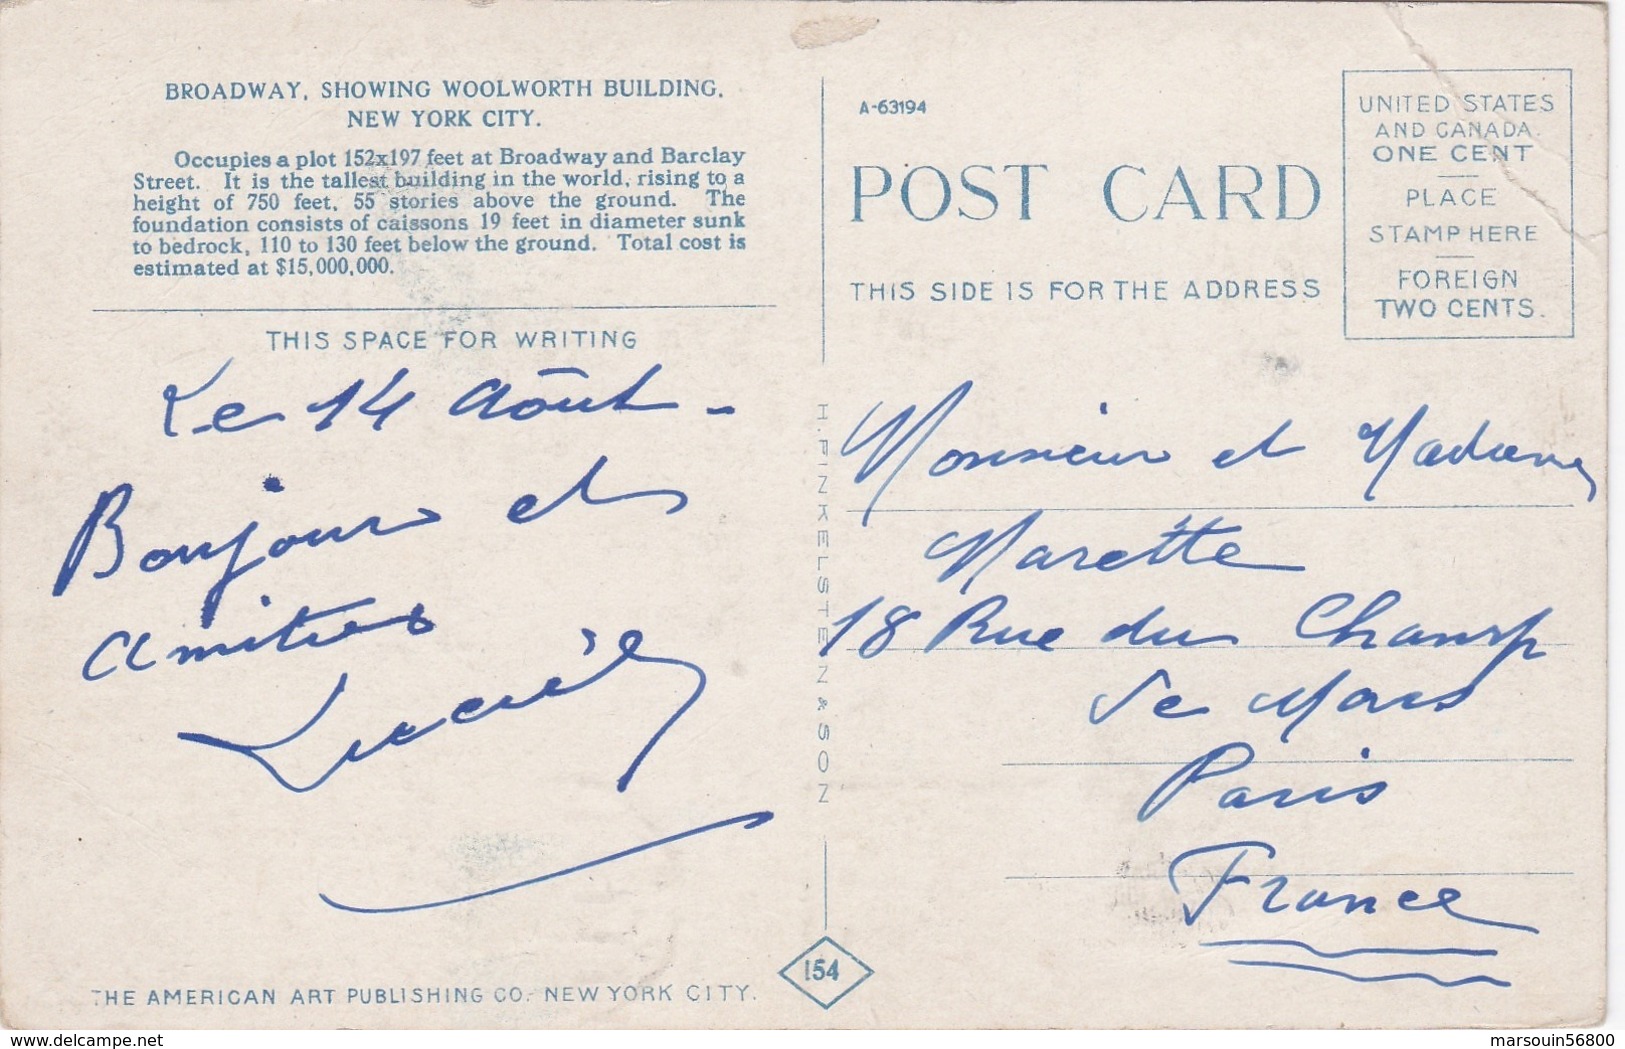 BROADWAY, SHOWING WOOLWORTH BUILDING,
NEW YORK CITY.
Occupies a plot 152x197 feet at Broadway and Barclay
Street. It is the tallest building in the world, rising to a
height of 750 feet, 55 stories above the ground. The
foundation consists of caissons 19 feet in diameter sunk
to bedrock, 110 to 130 feet below the ground. Total cost is
estimated at $15,000,000.
THIS SPACE FOR WRITING
Le 14 Août -
Bonjour et
amitiés
THE AMERICAN ART PUBLISHING CO. NEW YORK CITY.
H. FINKELSTEIN & SON
154
A-63194
POST CARD
THIS SIDE IS FOR THE ADDRESS
UNITED STATES
AND CANADA
ONE CENT
PLACE
STAMP HERE
FOREIGN
TWO CENTS.
Monsieur et Madame
Marette
18 Rue du Champ
de Mars
Paris
France
delcampe.net
marsouin56800